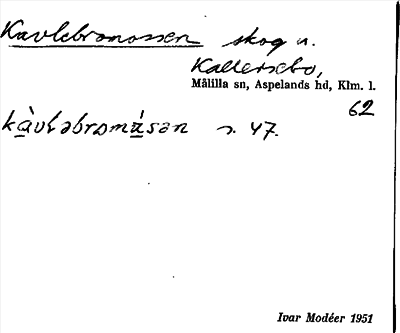 Kavlebromossen skog n.
Kallersebo,
Målilla sn, Aspelands hd, Klm. l.
62
s. 47.
Ivar Modéer 1951